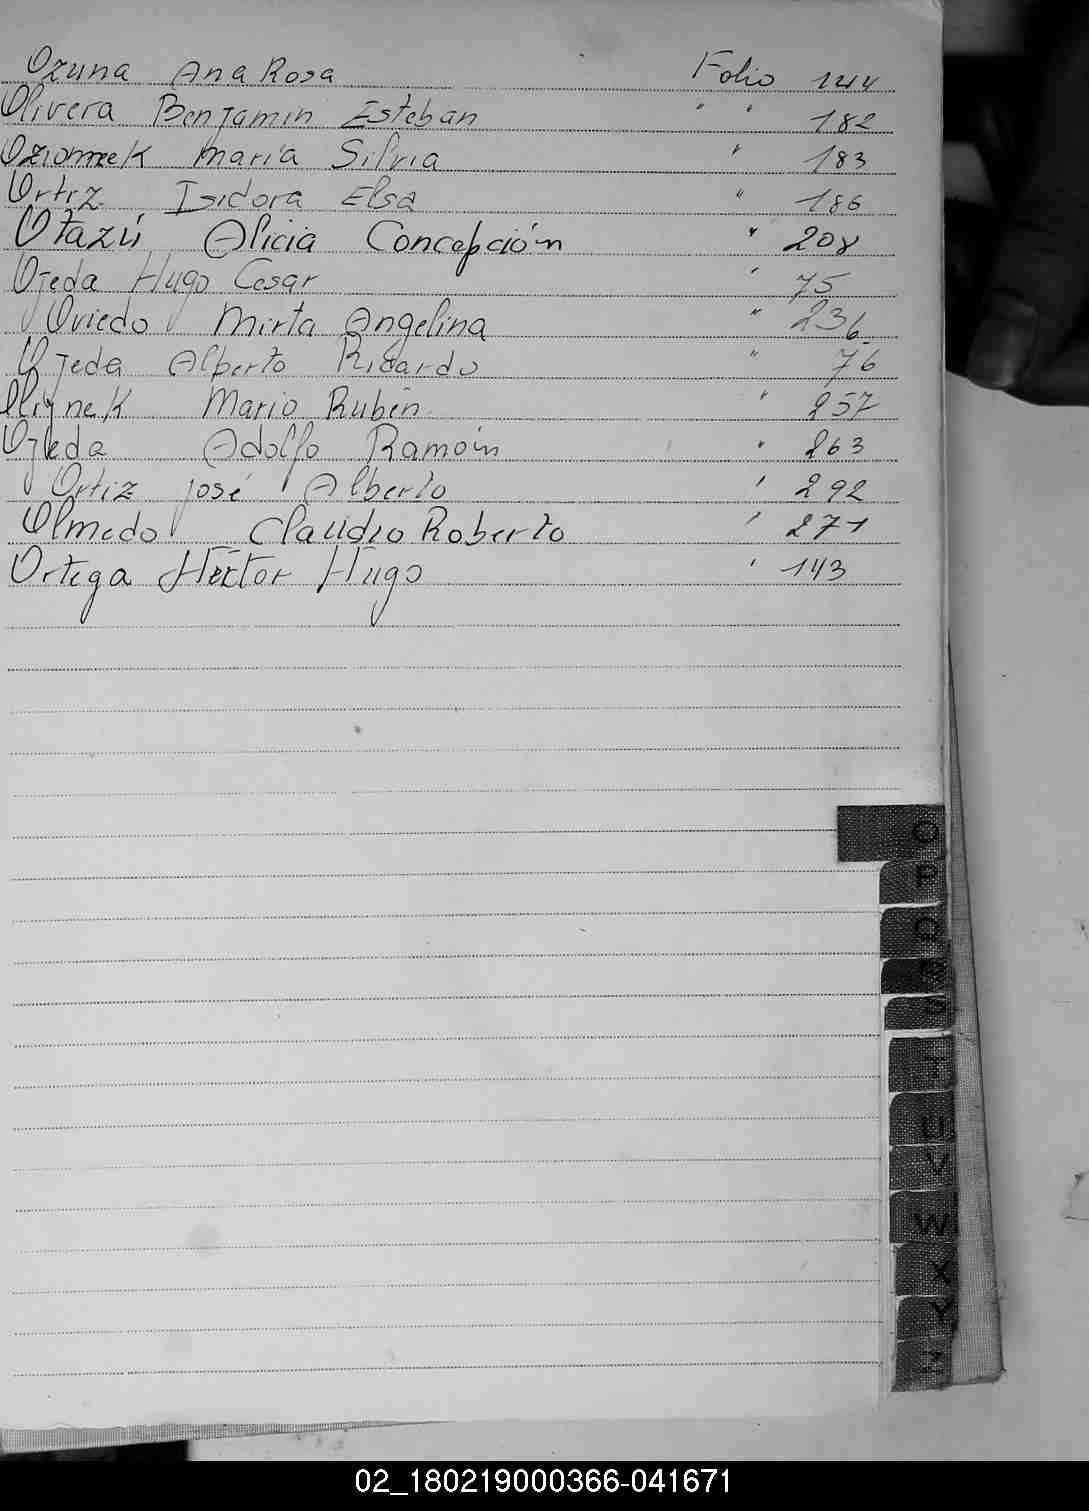 Ozuna Ana Rosa Folio 144
Olivera Benjamin Esteban " " 182
Oziomek Maria Silvia " 183
Ortiz Isidora Elsa " 186
Otazú Alicia Concepción " 208
Ojeda Hugo Cesar " 75
Oviedo Mirta Angelina " 236
Ojeda Alberto Ricardo " 76
Mario Ruben " 257
Ojeda Adolfo Ramón " 263
Ortiz José Alberto " 292
Olmedo Claudio Roberto " 271
Ortega Héctor Hugo " 143
O
P
Q
R
S
T
U
V
W
X
Y
Z
02_180219000366-041671